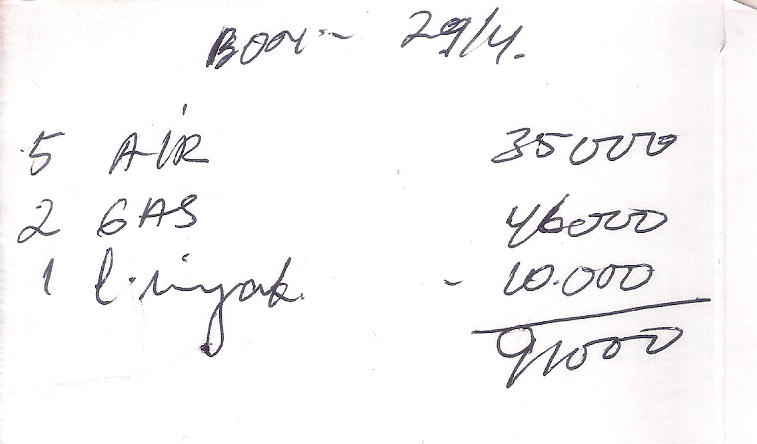 Bon :- 29/4.
5 AIR 35000
2 GAS 46000
1 l. inyak - 10.000
91000